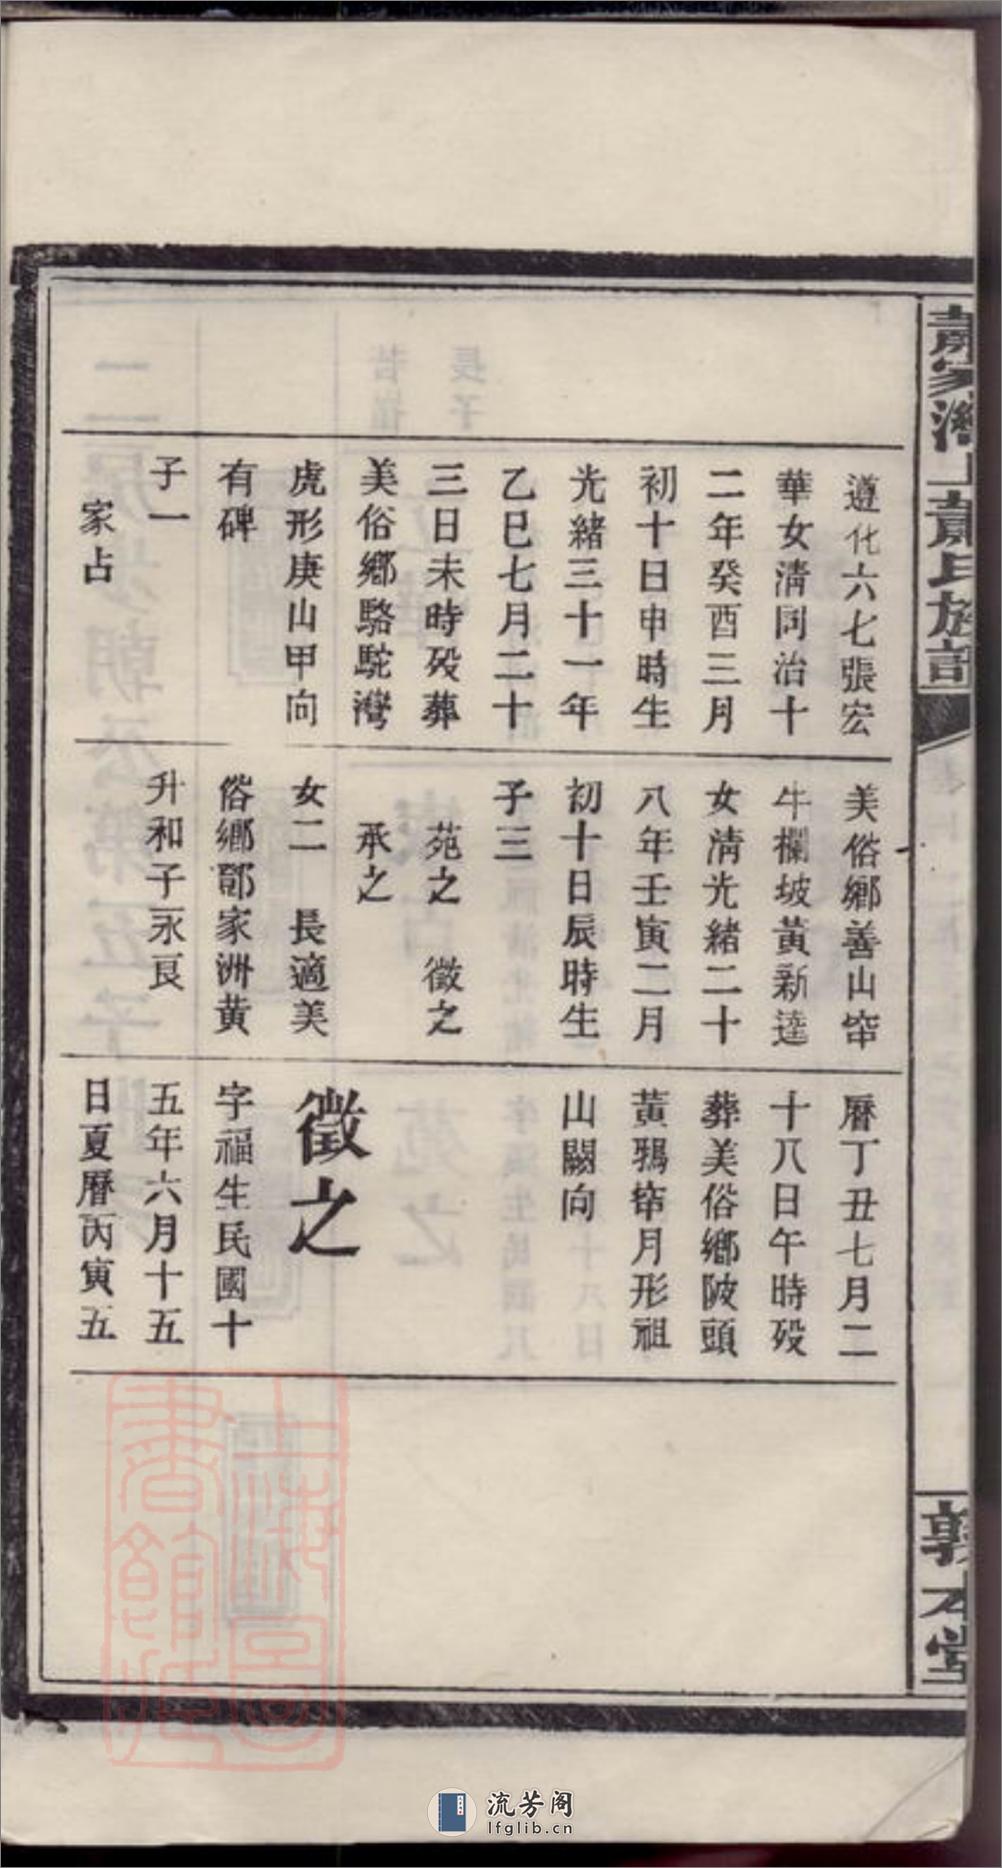 遵化六七張宏
華女淸同治十
二年癸酉三月
初十日申時生
光緒三十一年
乙巳七月二十
三日未時歿葬
美俗鄉駱駝灣
虎形庚山甲向
有碑
子一
家占
美俗鄉善山窂
牛欄坡黃新達
女淸光緒二十
八年壬寅二月
初十日辰時生
子三
苑之 徵之
承之
女二 長適美
俗鄉鄧家洲黃
升和子永良
曆丁丑七月二
十八日午時歿
葬美俗鄉陂頭
黃鴉窂月形祖
山闕向
徵之
字福生民國十
五年六月十五
日夏曆丙寅五
蕭家灣上蕭氏族譜
敦本堂
上海圖書館藏
流芳阁
lfglib.cn